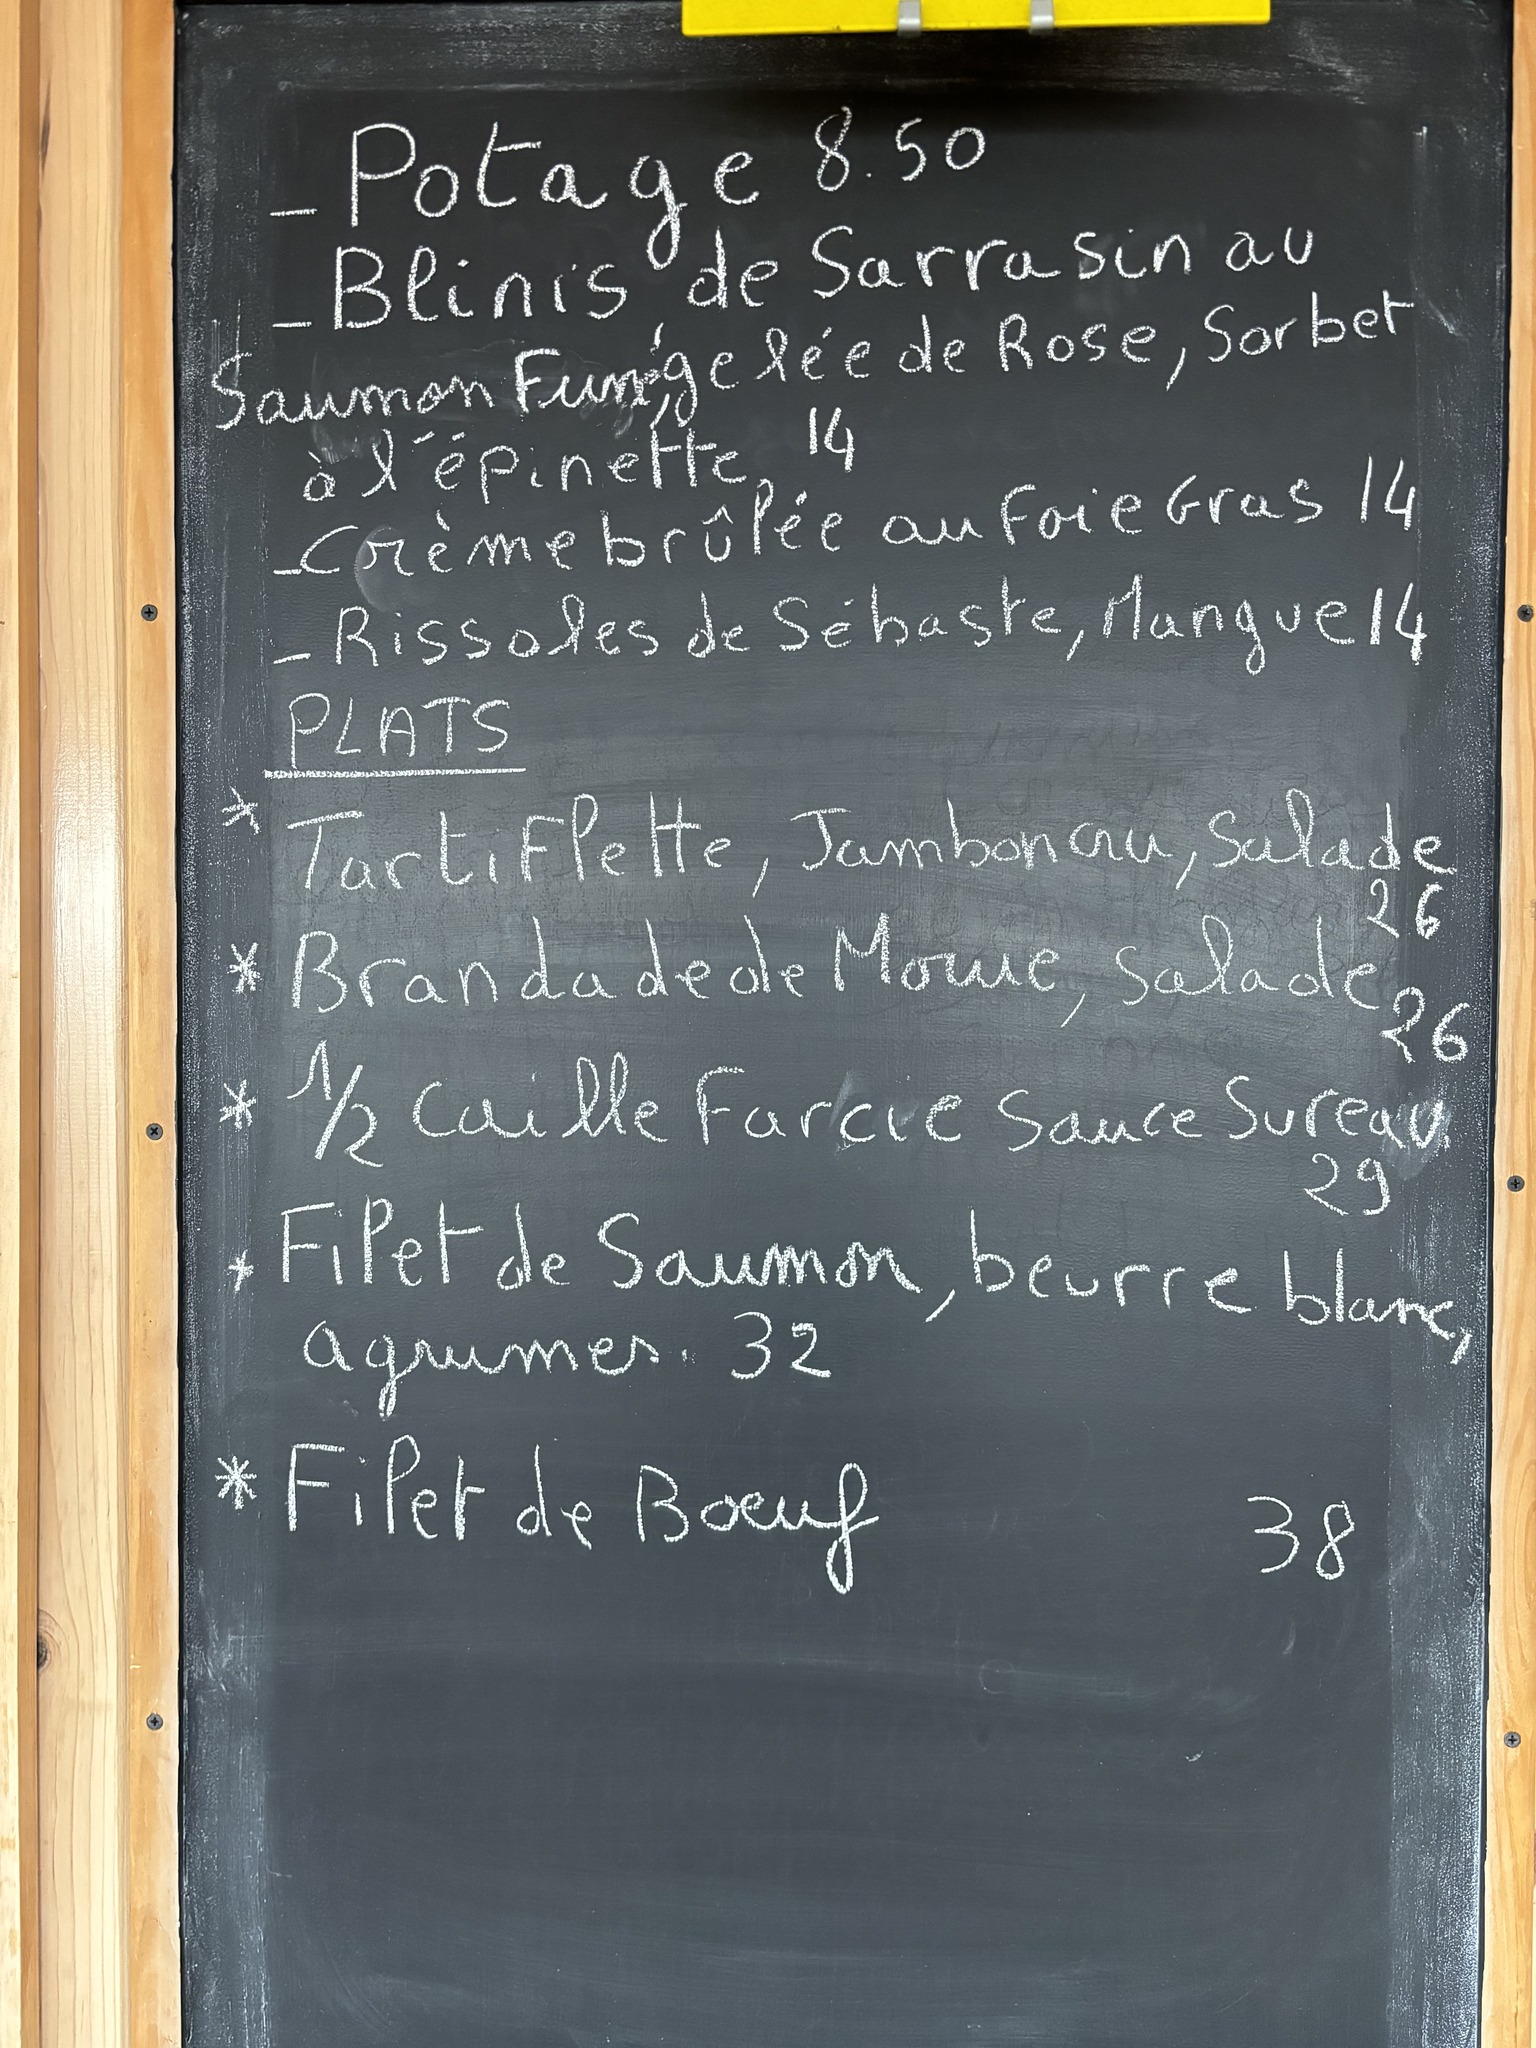 - Potage 8.50
- Blinis de Sarrasin au
Saumon Fumé, gelée de Rose, Sorbet
à l'épinette 14
- Crème brûlée au Foie Gras 14
- Rissoles de Sébaste, Mangue 14
PLATS
* Tartiflette, Jambon cru, Salade
26
* Brandade de Morue, Salade
26
* 1/2 Caille Farcie Sauce Sureau
29
* Filet de Saumon, beurre blanc,
agrumes. 32
* Filet de Bœuf 38